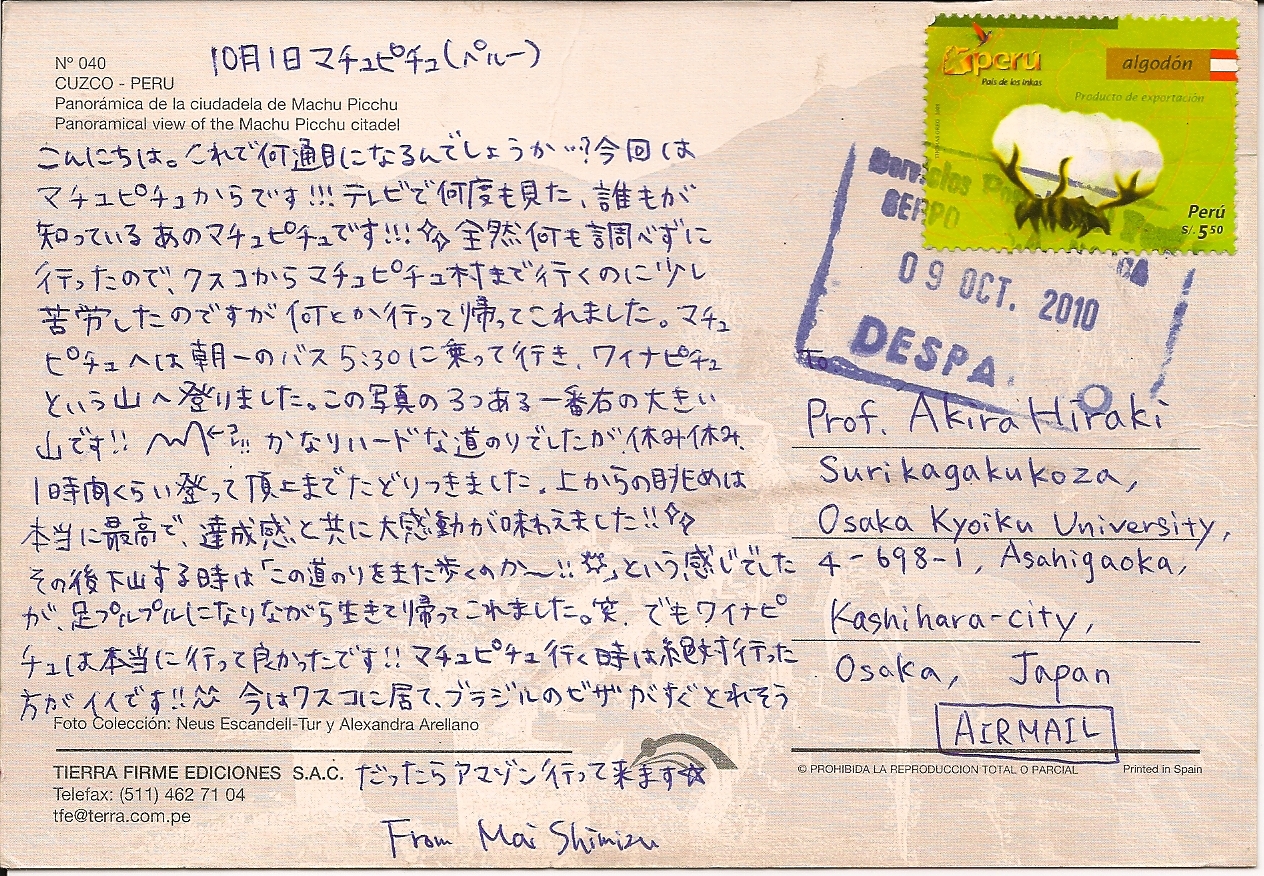 Nº 040
CUZCO - PERU
Panorámica de la ciudadela de Machu Picchu
Panoramical view of the Machu Picchu citadel
10月1日 マチュピチュ(ペルー)
こんにちは。これで何通目になるんでしょうか…?今回は
マチュピチュからです!!!テレビで何度も見た、誰もが
知っているあのマチュピチュです!!!☆☆ 全然何も調べずに
行ったので、クスコからマチュピチュ村まで行くのに少し
苦労したのですが何とか行って帰ってこれました。マチュ
ピチュへは朝一のバス5:30に乗って行き、ワイナピチュ
という山へ登りました。この写真の3つある一番右の大きい
山です!! ←コレ!! かなりハードな道のりでしたが、休み休み、
1時間くらい登って頂上までたどりつきました。上からの眺めは
本当に最高で、達成感と共に大感動が味わえました!!☆☆
その後下山する時は「この道のりをまた歩くのか〜!!」という感じでした
が、足プルプルになりながら生きて帰ってこれました。笑。でもワイナピ
チュは本当に行って良かったです!!マチュピチュ行く時は絶対行った
方がイイです!!^^ 今はクスコに居て、ブラジルのビザがすぐとれそう
だったらアマゾン行って来ます☆
From Mai Shimizu
Foto Colección: Neus Escandell-Tur y Alexandra Arellano
TIERRA FIRME EDICIONES S.A.C.
Telefax: (511) 462 71 04
tfe@terra.com.pe
perú
País de los Inkas
algodón
Producto de exportación
Perú
S/. 5.50
Servicios
SERPO
09 OCT. 2010
DESPA.
to
Prof. Akira Hiraki
Surikagakukoza,
Osaka Kyoiku University,
4-698-1, Asahigaoka,
Kashihara-city,
Osaka, Japan
AIRMAIL
© PROHIBIDA LA REPRODUCCION TOTAL O PARCIAL
Printed in Spain